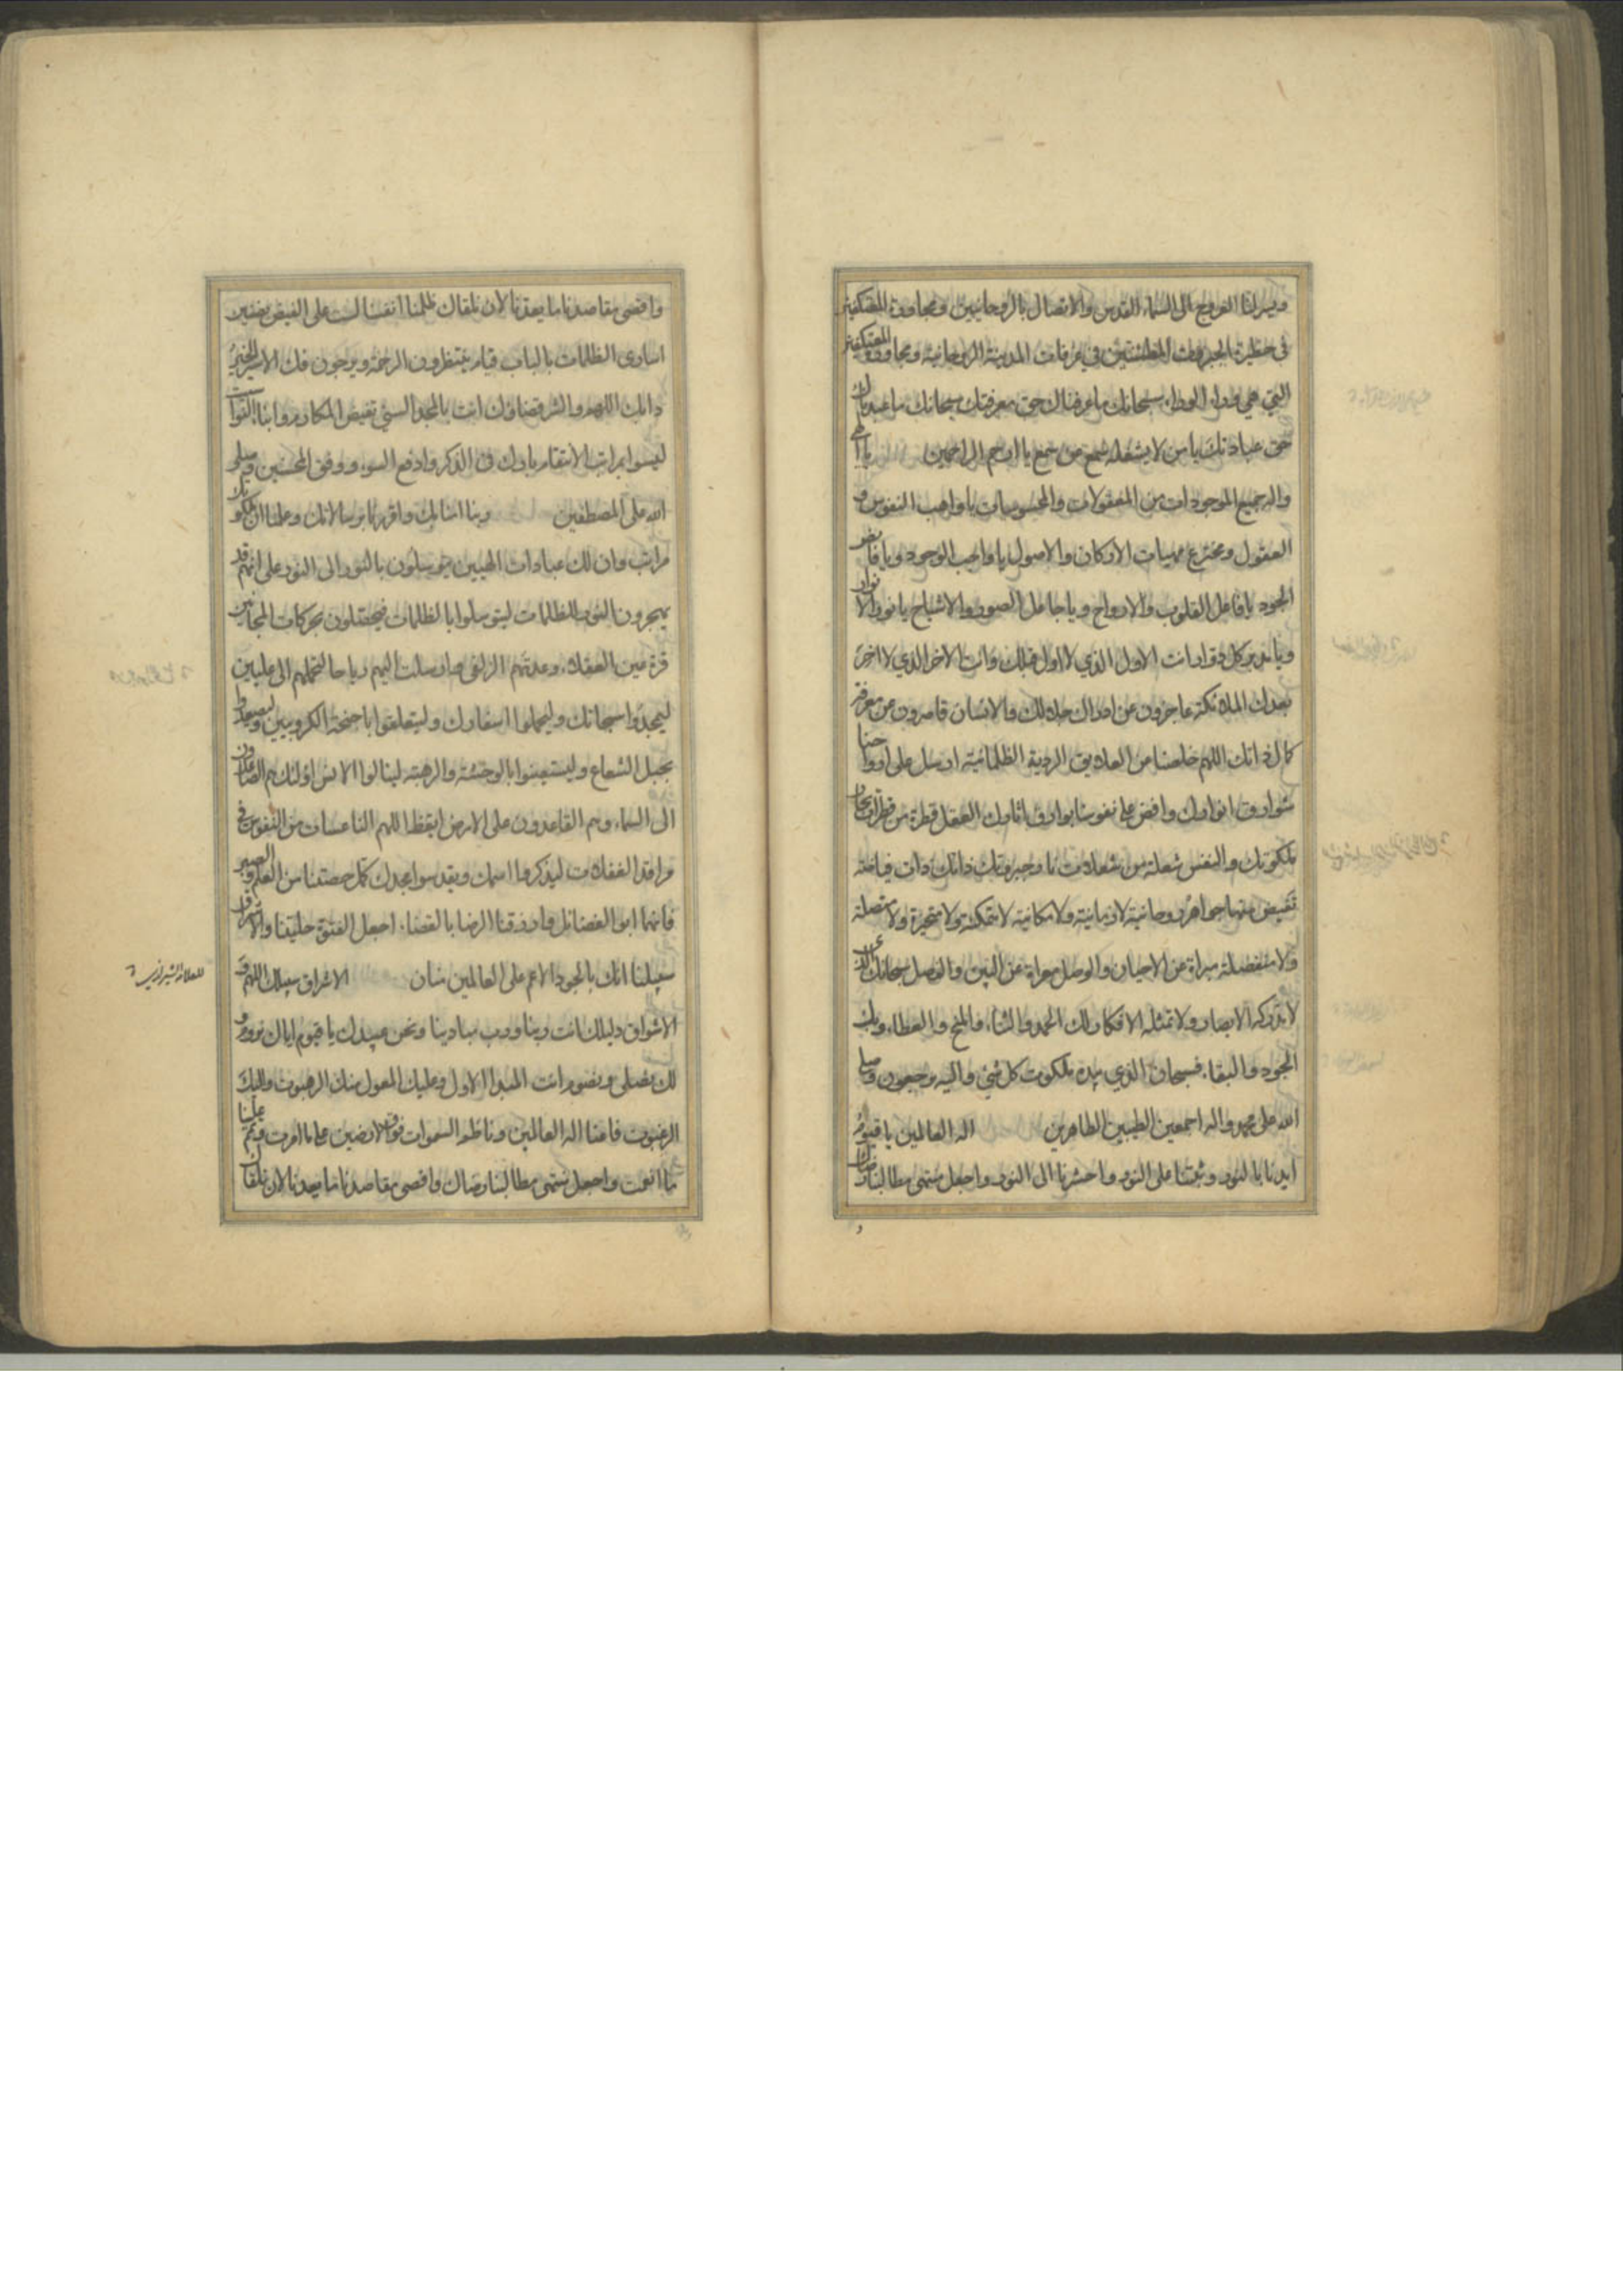 ويسر لنا العروج الى السماء القدس والاتصال بالروحانيين ومجاورة المعتكفين
فى حظيرة الجبروت المطمئنين في غرفات المدينة الروحانية ومجاورة المعتكفين
التي هي وراء الوراء سبحانك ما عرفناك حق معرفتك سبحانك ما عبدناك
حق عبادتك يا من لا يشغله سمع عن سمع يا ارحم الراحمين يا اله
واله جميع الموجودات من المعقولات والمحسوسات يا واهب النفوس و
العقول ومخترع مهيات الاركان والاصول يا واجب الوجود ويا فايض
الجود يا فاعل القلوب والارواح ويا جاعل الصور والاشباح يا نور الانوار
ويا مدبر كل دوار انت الاول الذي لا اول قبلك وانت الاخر الذي لا اخر
بعدك الملائكة عاجزون عن ادراك جلالك والانسان قاصرون عن معرفة
كمال ذاتك اللهم خلصنا من العلايق الردية الظلمانية ارسل على ارواحنا
شوارق انوارك وافض على نفوسنا بوارق اثارك العقل قطرة من قطرات بحار
ملكوتك والنفس شعلة من شعلات نار جبروتك ذاتك ذات فياضة
تفيض منها جواهر روحانية لا زمانية ولا مكانية لا متمكنة ولا متحيزة ولا متصلة
ولا منفصلة مبراة عن الاحيان والوصل معراة عن البين والفصل سبحانك الذي
لا تدركه الابصار ولا تمثله الافكار لك الحمد والثناء والمنح والعطاء وبك
الجود والبقاء فسبحان الذي بيده ملكوت كل شئ واليه ترجعون وصلى
الله على محمد واله اجمعين الطيبين الطاهرين اله العالمين يا قيوم
ايدنا بالنور وثبتنا على النور واحشرنا الى النور واجعل منتهى مطالبنا رضاك
و
واقصى مقاصدنا ما يعدنا لان نلقاك ظلمنا انفسنا لست على الفيض بضنين
اسارى الظلمات بالباب قيام ينتظرون الرحمة ويرجون فك الاسير الخير
دابك اللهم والشر قضاؤك انت بالمجد السني تفيض المكارم وابناء النواسيت
ليسوا بمراتب الانتقام بارك فى الذكر وادفع السوء ووفق المحسنين وصلى
الله على المصطفين ربنا امنا بك واقررنا برسالاتك وعلمنا ان لملكوتك
مراتب وان لك عبادات الهيين يتوسلون بالنور الى النور على انهم قد
يهجرون النور للظلمات ليتوسلوا بالظلمات فيحتلون بحركات المجانين
قرة عين العقلاء وعدتهم الزلفى وارسلت اليهم رياحا لتحملهم الى عليين
ليمجدوا سبحاتك وليحملوا اسفارك وليتعلقوا باجنحة الكروبيين وليصعدوا
بحبل الشعاع وليستعينوا بالوحشة والرهبة لينالوا الانس اولئك هم الصاعدون
الى السماء وهم القاعدون على الارض ايقظ اللهم الناعسات من النفوس فى
مراقد الغفلات ليذكروا اسمك ويقدسوا مجدك كمل حصتنا من العلم والصبر
فانهما ابوا الفضائل وارزقنا الرضا بالقضاء واجعل الفتوة حليتنا والاشراق
سبيلنا انك بالجود الاعم على العالمين منان الاشراق سبيلك اللهم و
للعلامة الشيرازي
الاشواق دليلك انت ربنا ورب مبادينا ونحن عبيدك يا قيوم اياك نروم و
لك نصلي ونصوم انت المبدا الاول وعليك المعول منك الرهبوت واليك
الرغبوت فاعنا اله العالمين وناظم السموات فوق الارضين على ما امرت وتمم علينا
ما انعمت واجعل منتهى مطالبنا رضاك واقصى مقاصدنا ما يعدنا لان نلقاك